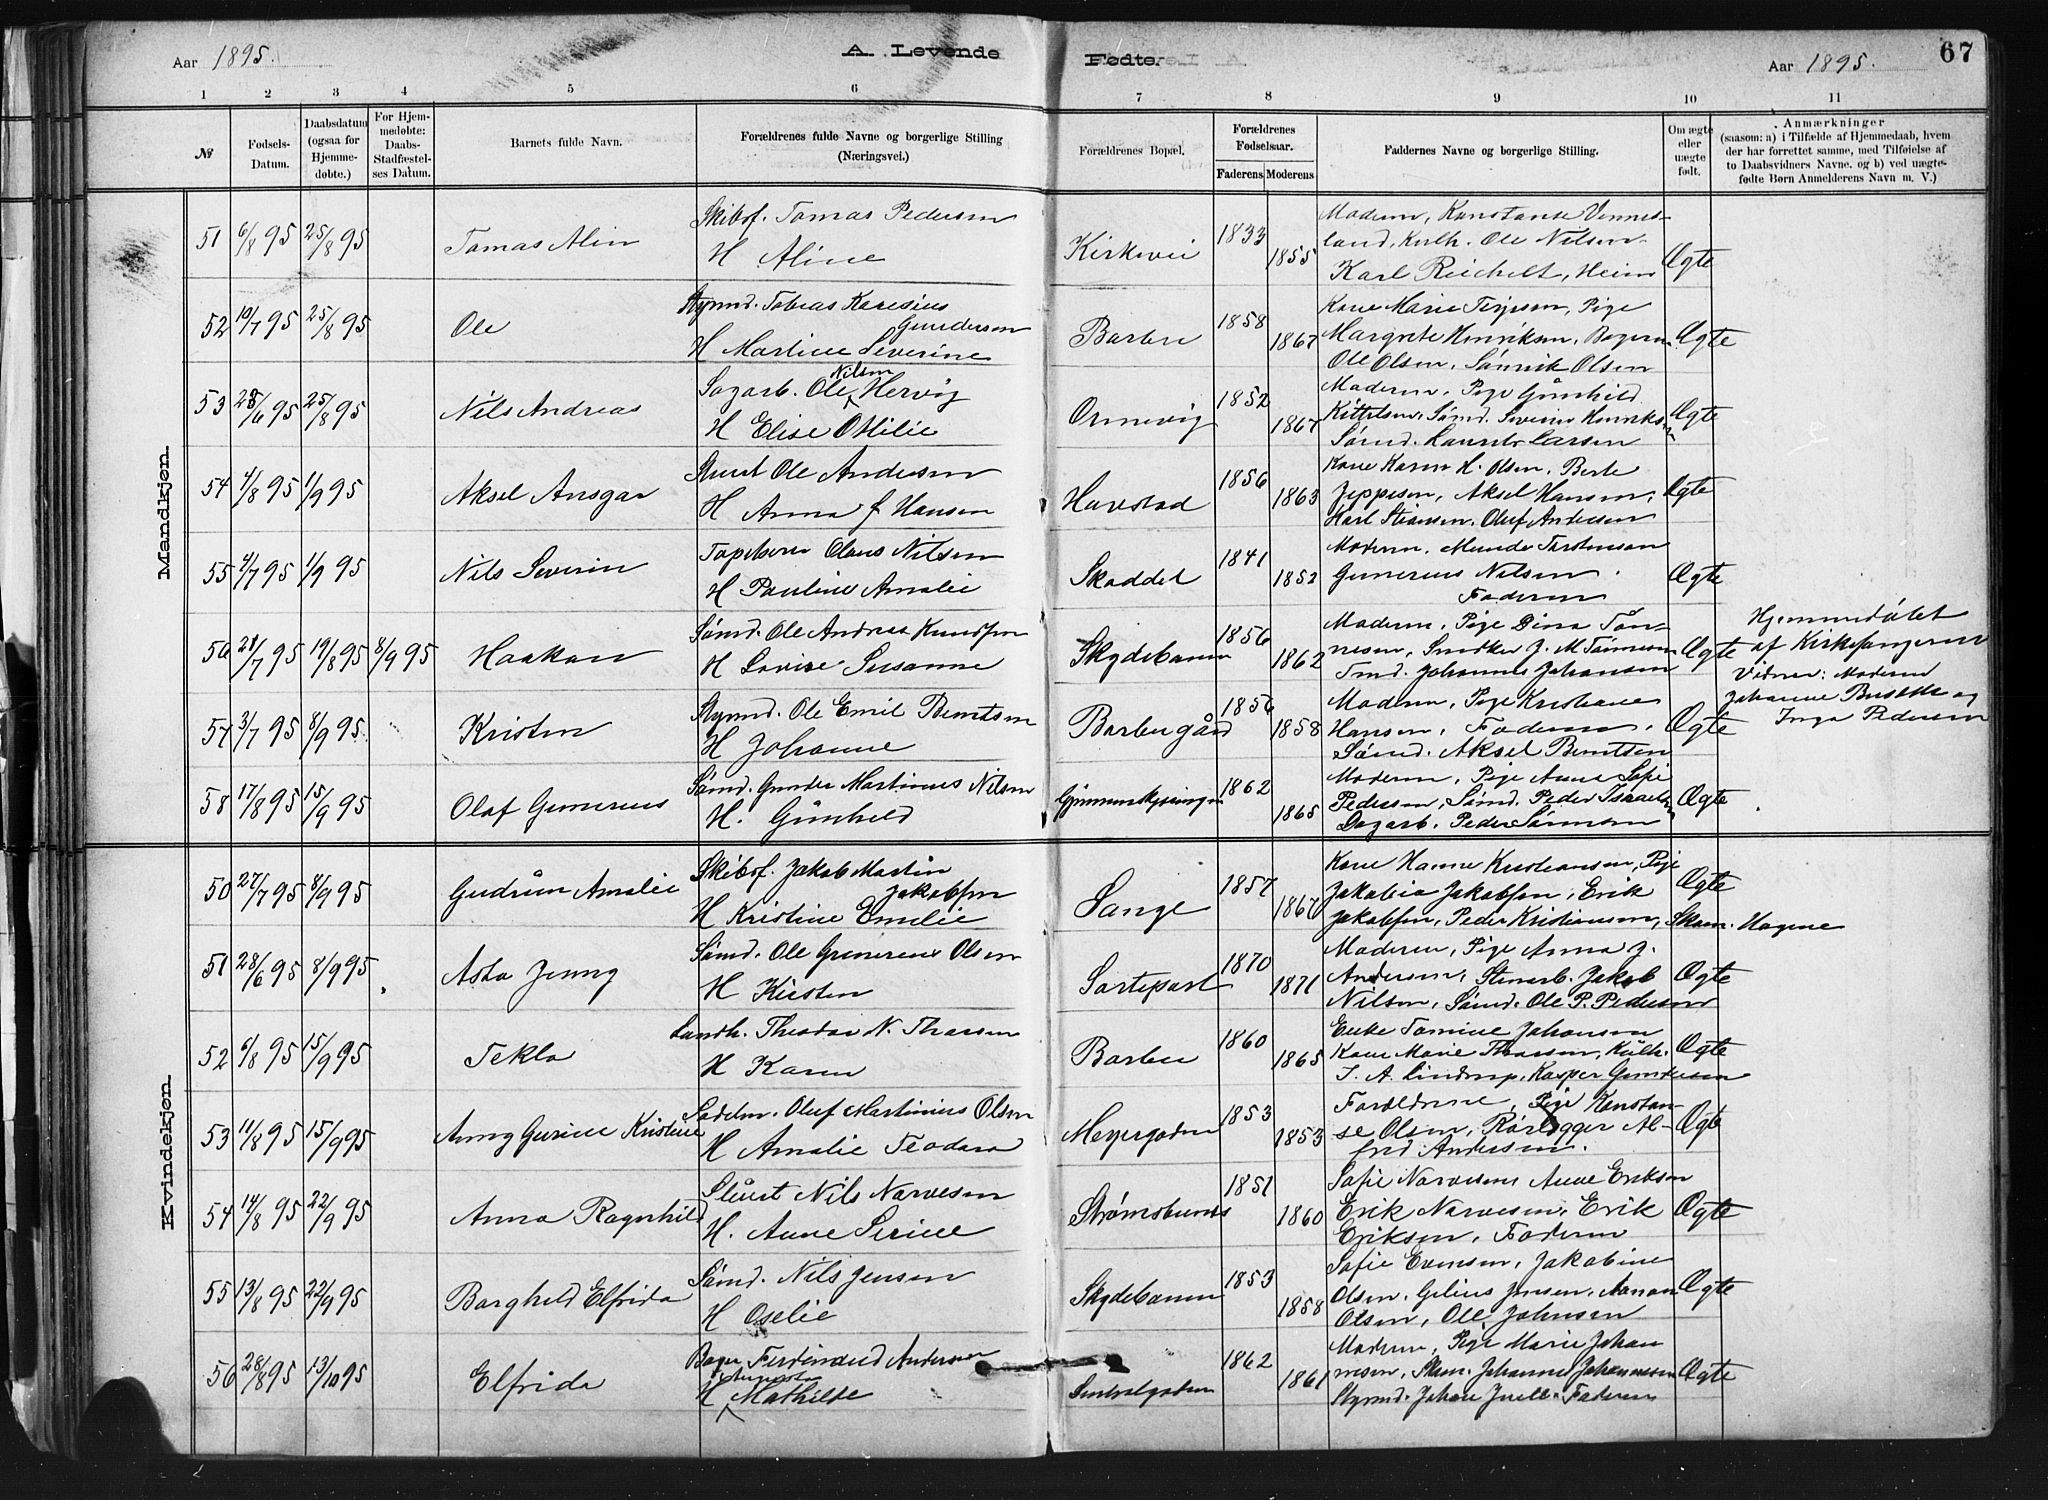 Aar 1895.
A. Levende
Fødte.
Aar 1895.
67
1 2 3 4 5 6 7 8 9 10 11
№
Fødsels-
Datum.
Daabsdatum
(ogsaa for
Hjemme-
døbte.)
For Hjem-
medøbte:
Daabs-
Stadfæstel-
ses Datum.
Barnets fulde Navn.
Forældrenes fulde Navne og borgerlige Stilling
(Næringsvei.)
Forældrenes Bopæl.
Forældrenes
Fødselsaar.
Faderens Moderens
Faddernes Navne og borgerlige Stilling.
Om ægte
eller
uægte
født.
Anmærkninger
(saasom: a) i Tilfælde af Hjemmedaab, hvem
der har forrettet samme, med Tilføielse af
to Daabsvidners Navne, og b) ved uægte-
fødte Børn Anmelderens Navn m. V.)
Mandkjøn.
51 6/8 95 25/8 95 Tomas Alin
Skibsf. Tomas Pedersen
H Aline
Kirkevei 1833 1855
Moderen, Konstanse Vennes-
land, Ole Nilsen
Karl Reichelt, Heim
Ægte
52 10/7 95 25/8 95 Ole
Styrmd. Tobias Karesius
Gundersen
H Martine Severine
Barbu 1858 1867
Kone Marie Terjesen, Pige
Margrete Henriksen, Bager
Ole Olsen, Sønnik Olsen
Ægte
53 28/6 95 25/8 95 Nils Andreas
Sagarb. Ole Nilsen Hervig
H Elise Otilie
Ormevig 1852 1867
Moderen, Pige Gunhild
Kittelsen, Sømd. Severin Henriksen
Sømd. Laurits Larsen
Ægte
54 4/8 95 1/9 95 Aksel Ansgar
Stuert Ole Andersen
H Anna f Hansen
Havstad 1856 1863
Kone Karen H. Olsen, Berte
Jeppesen, Aksel Hansen,
Karl Stiansen, Oluf Andersen
Ægte
55 4/7 95 1/9 95 Nils Severin
Tapetserer Olaus Nilsen
H Pauline Amalie
Skoddel 1841 1852
Moderen, Munda Torstensen
Gunerius Nilsen
Faderen
Ægte
56 21/7 95 19/8 95 8/9 95 Haakon
Sømd. Ole Andreas Knudsen
H Lovise Susanne
Skydebanen 1856 1862
Moderen, Pige Dina Tøn-
nesen, Snedker J. M. Tønnesen
Tmd. Johannes Johansen
Ægte
Hjemmedøbt
af Kirkesangeren
Vidner: Moderen
Johanne og
Inga Pedersen
57 3/7 95 8/9 95 Kristen
Styrmd. Ole Emil Berntsen
H Johanne
Barbugård 1856 1858
Moderen, Pige Kristiane
Hansen, Faderen,
Sømd. Aksel Berntsen
Ægte
58 17/8 95 15/9 95 Olaf Gunerius
Sømd. Gunder Martinius Nilsen
H. Gunhild
1862 1865
Moderen, Pige Anna Sofie
Pedersen, Sømd. Peder Israelsen
Dagarb. Peder Sørensen
Ægte
Kvindekjøn.
50 27/7 95 8/9 95 Gudrun Amalie
Skibsf. Jakob Martin
Jakobsen
H Kristine Emilie
Lange 1857 1867
Kone Hanne Kristiansen, Pige
Jakobia Jakobsen, Erik
Jakobsen, Peder Kristiansen, Skom. Hagene
Ægte
51 28/6 95 8/9 95 Asta Jenny
Sømd. Ole Gunerius Olsen
H Kirsten
Sortepart 1870 1871
Moderen, Pige Anna J.
Andersen, Stenarb. Jakob
Nilsen, Sømd. Ole P. Pedersen
Ægte
52 6/8 95 15/9 95 Tekla
Landh. Theodor N. Tharsen
H Karen
Barbu 1860 1865
Enke Tomine Johansen
Kone Marie Tharsen,
I. A. Lindrup, Kasper Gundersen
Ægte
53 11/8 95 15/9 95 Anny Gurine Kristine
Sadelm. Oluf Martinius Olsen
H Amalie Teodora
Meyergaden 1853 1853
Forældrene, Pige Konstan-
se Olsen, Rørlægger Al-
fred Andersen.
Ægte
54 14/8 95 22/9 95 Anna Ragnhild
Stuert Nils Narvesen
H. Anne Serine
Strømsbunes 1851 1860
Sofie Narvesen, Anne Eriksen
Erik Narvesen, Erik
Eriksen, Faderen
Ægte
55 13/8 95 22/9 95 Borghild Elfrida
Sømd. Nils Jensen
H Oselie
Skydebanen 1853 1858
Sofie Evensen, Jakobine
Olsen, Gelius Jensen, Aanon
Olsen, Ole Johnsen
Ægte
56 28/8 95 13/10 95 Elfrida
Bager Ferdinand Andersen
H Augusta Mathilde
Sentralgaden 1862 1861
Moderen, Pige Marie Johan
nesen, Skom. Johannes Johannesen
Styrmd. Johan Juell, Faderen
Ægte